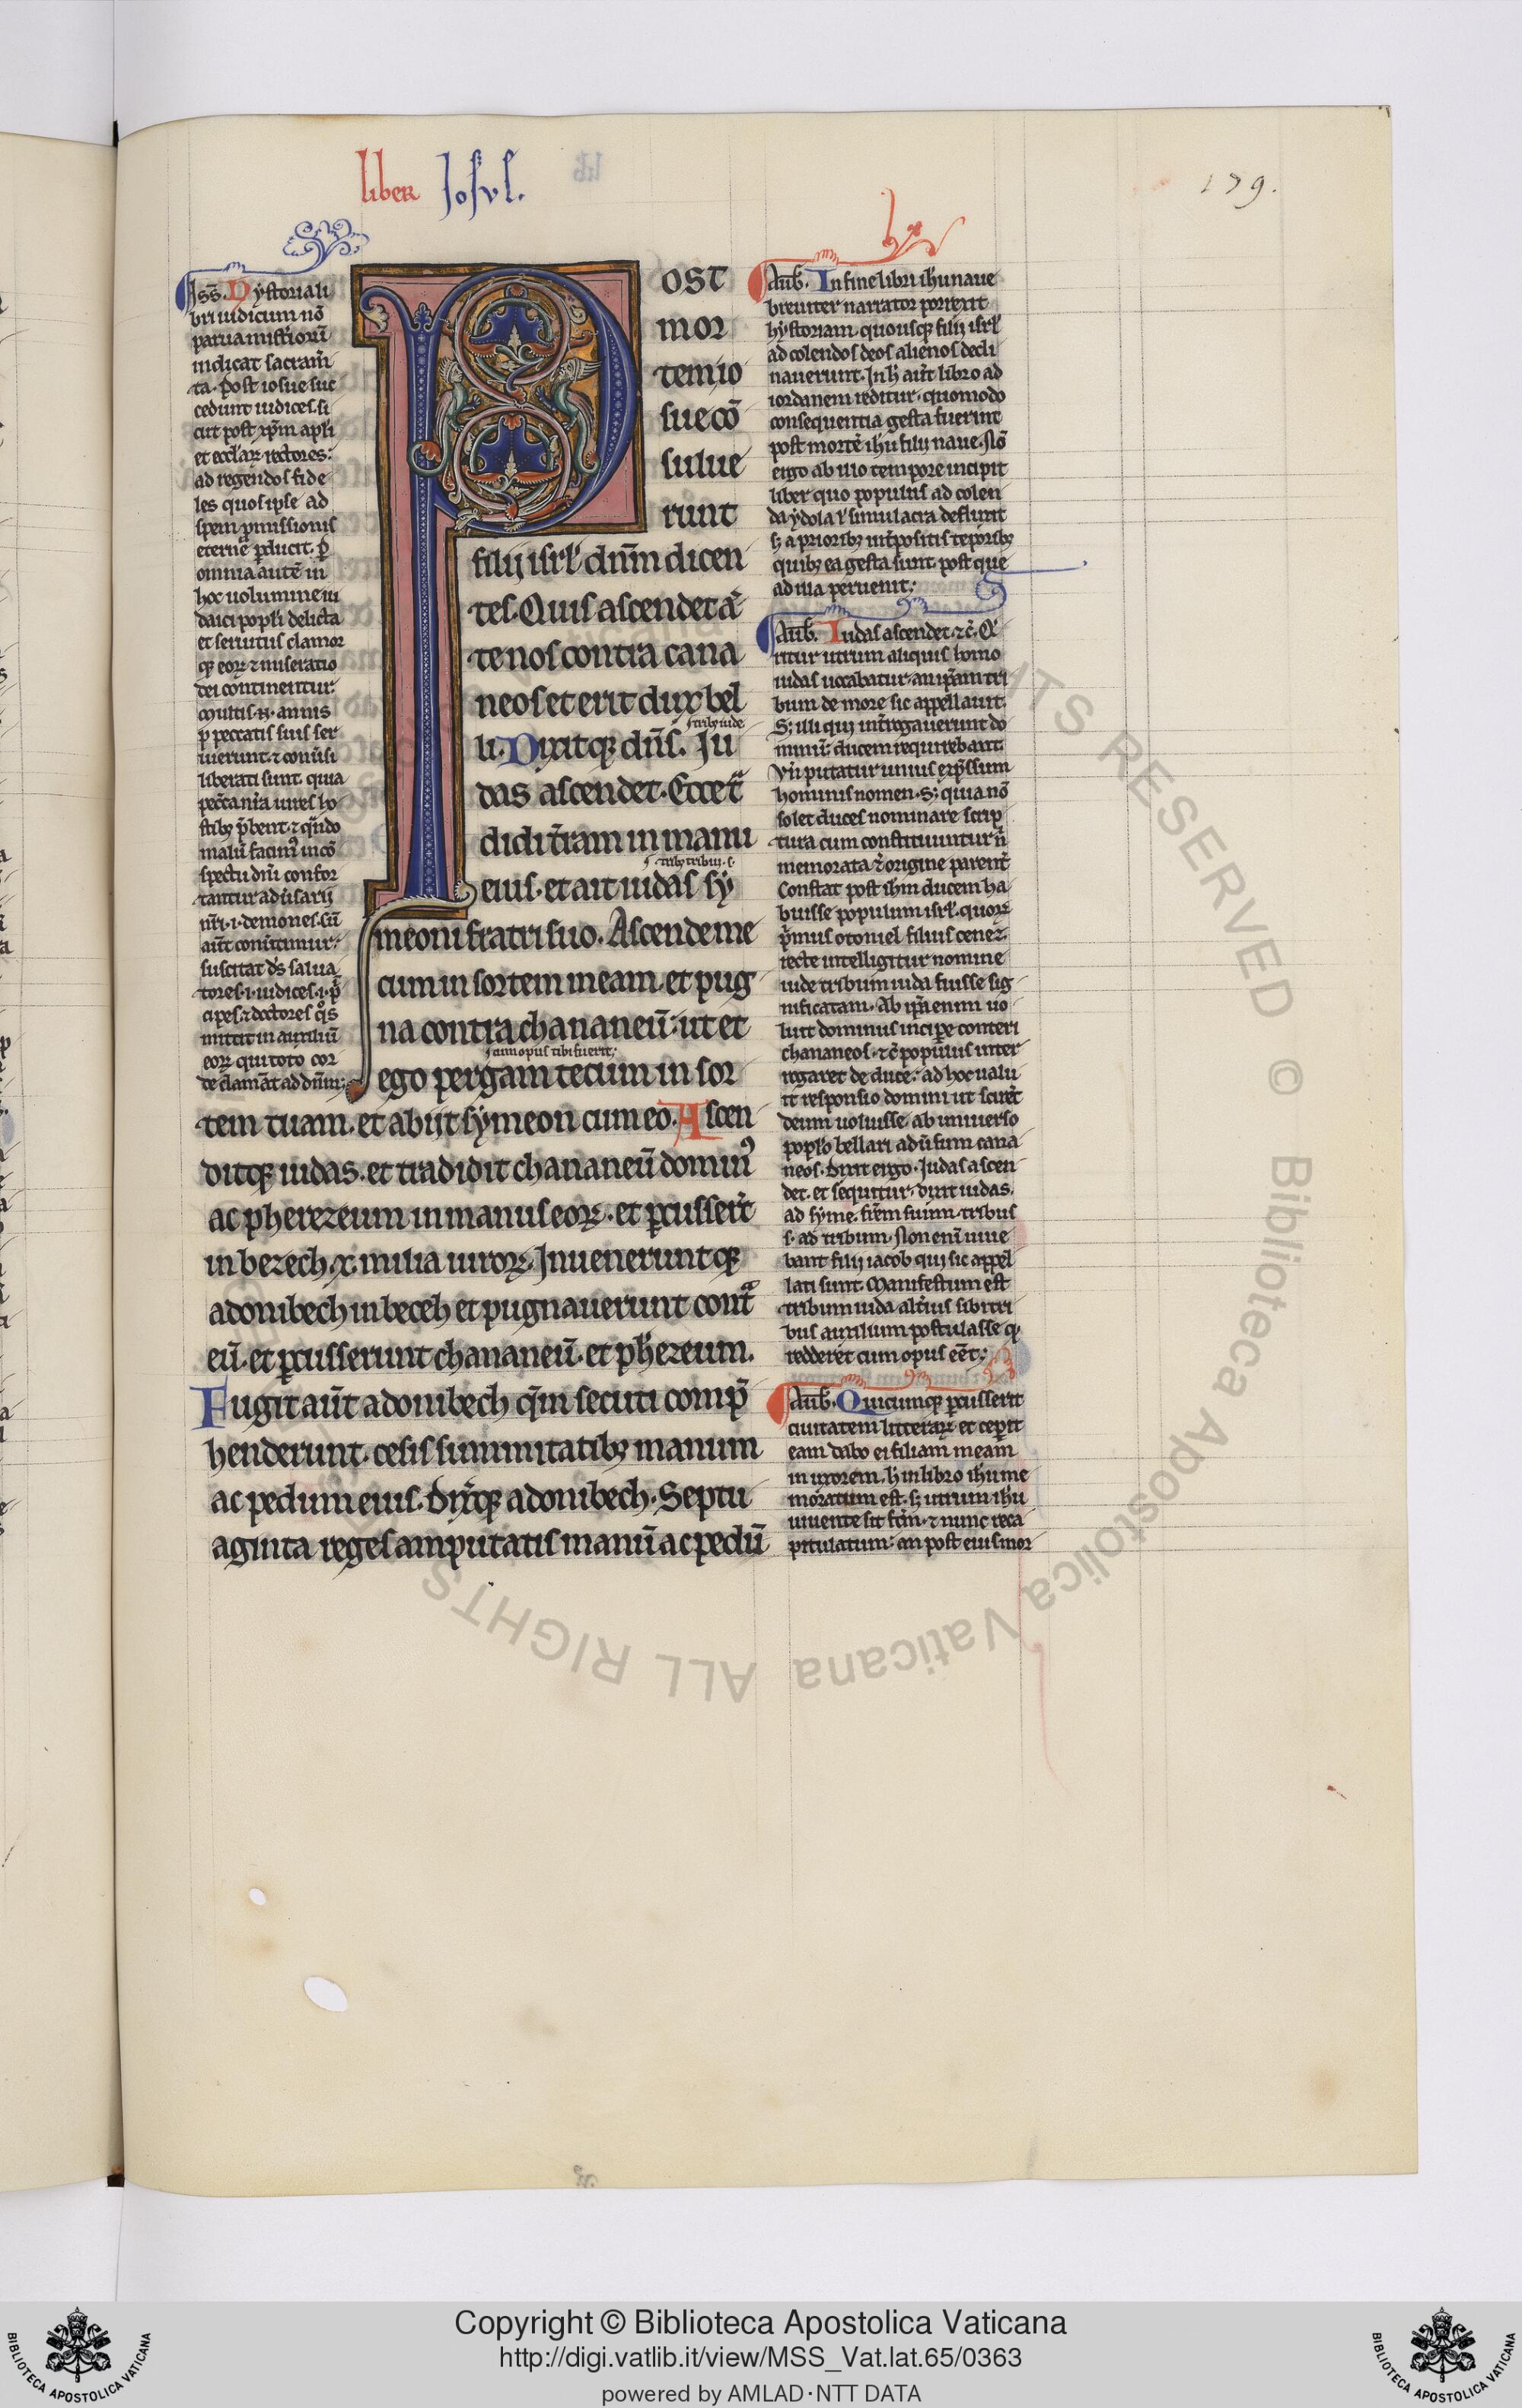 liber Josvl.
179.
Iss. Hystoria li
bri iudicum nō
parua mistiorū
indicat sacram̄
ta. Post iosue suc
cedunt iudices. si
cut post xp̄m apl̄i
et eccl̄aꝝ rectores:
ad regendos fide
les quos ipse ad
spem ꝓmissionis
eterne ꝑducit. ꝑ
omnia autē in
hoc uolumine iu
daici popl̄i delicta
et seruitus clamor
qꝫ eoꝝ ⁊ miseratio
dei continentur.
Multis .N. annis
ꝓ peccatis suis ser
uierunt. ⁊ conūsi
liberati sunt. quia
pecc̄antia uires ho
stibꝫ p̄bent. ⁊ qn̄do
malū facimꝰ in cō
spectu dn̄i confor
tantur adūsarij
nr̄i .i. demones. cū
aūt conūtimur:
suscitat d̄s salua
tores .i. iudices .i. p̄
cipes ⁊ doctores qͦs
mittit in auxiliū
eoꝝ qui toto cor
de clamāt ad dn̄m:
POST
mor
tem io
sue cō
sulue
runt
filij isrl̄ dn̄m dicen
tes. Quis ascendet a
te nos contra cana
neos et erit dux bel
s. tribꝫ iude
li. Dixitqꝫ dn̄s. Iu
das ascendet. Ecce t
didi t̄ram in manu
s. tribꝫ tribui .s.
eius. et ait iudas sy
meoni fratri suo. Ascende me
cum in sortem meam. et pug
na contra chananeū. ut et
s. cum opus tibi fuerit.
ego pergam tecum in sor
tem tuam. et abijt symeon cum eo. Ascen
ditqꝫ iudas. et tradidit chananeū dominꝰ
ac pherezeum in manus eoꝝ. et ꝑcusser̄t
in bezech .x. milia uiroꝝ. Inuenerunt qꝫ
adonibech in beceh et pugnauerunt contͣ
eū. et ꝑcusserunt chananeū. et pherezeum.
Fugit aūt adonibech qm̄ secuti comp̄
henderunt. cesis summitatibꝫ manum
ac pedum eius. Dix̄qꝫ adonibech. Septu
aginta reges amputatis manū ac pedū
Aub. In fine libri ihu naue
breuiter narrator porrexit
hystoriam. quousqꝫ filij isrl̄
ad colendos deos alienos decli
nauerunt. In h̄ aūt libro ad
iordanem reditur. quomodo
consequentia gesta fuerint
post mortē ihu filij naue. Nō
ergo ab illo tempore incipit
liber quo populus ad colen
da ydola ⁊ simulacra defluxit
sꝫ a prioribꝫ int̄positis tēporibꝫ
quibꝫ ea gesta sunt. post que
ad illa peruenit:
Aub. Iudas ascendet. ⁊c̄. Q̄
ritur utrum aliquis homo
iudas uocabatur. an ip̄am tri
bum de more sic appellauit.
Sꝫ illi qui int̄rogauerunt do
minū: ducem requirebant.
Vn̄ putatur unius exp̄ssum
hominis nomen. Sꝫ quia nō
solet duces nominare scrip
tura cum constituuntur n̄
memorata origine parent̄
Constat post ihm ducem ha
buisse populum isrl̄. quoꝝ
p̄mus otoniel filius cenez.
recte intelligitur nomine
iude tribum iuda fuisse sig
nificatam. Ab ip̄a enim uo
luit dominus incipe conteri
chananeos. ⁊ c̄ populus inter
rogaret de duce: ad hoc ualu
it responsio domini ut sciret̄
deum uoluisse ab uniuerso
popl̄o bellari adūsum cana
neos. Dixit ergo. Iudas ascen
det. et sequitur. dixit iudas.
ad syme. fr̄em suum. tribus
s. ad tribum. Non enī uiue
bant filij iacob qui sic appel
lati sunt. Manifestum est
tribum iuda alt̄ius sibi tri
bus auxilium postulasse. qꝫ
redderet cum opus ēet:
Aub. Quicumqꝫ ꝑcusserit
ciuitatem litteraꝝ. et ceperit
eam dabo ei filiam meam
in uxorem. h̄ in libro ihu me
moratum est. sꝫ utrum ihu
uiuente sit fc̄m. ⁊ nunc reca
pitulatum: an post eius mor
Copyright © Biblioteca Apostolica Vaticana
http://digi.vatlib.it/view/MSS_Vat.lat.65/0363
powered by AMLAD·NTT DATA
BIBLIOTECA APOSTOLICA VATICANA
BIBLIOTECA APOSTOLICA VATICANA
© Biblioteca Apostolica Vaticana ALL RIGHTS RESERVED